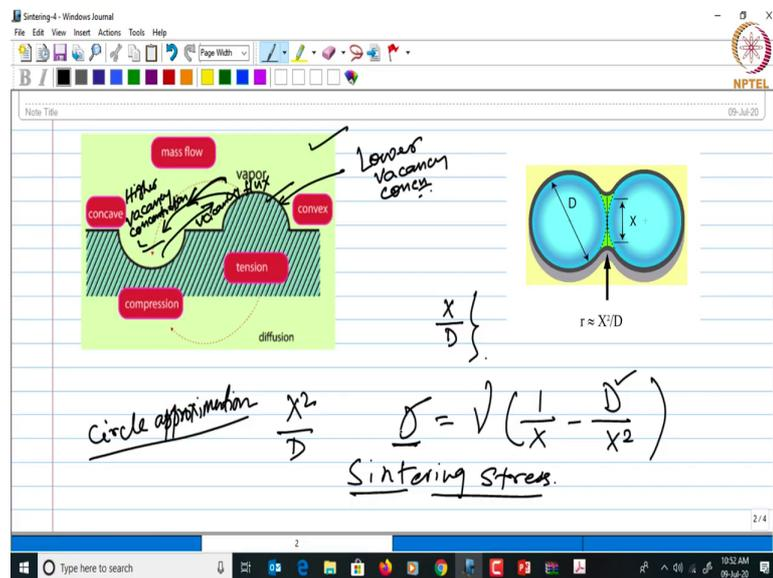 Sintering-4 - Windows Journal
File Edit View Insert Actions Tools Help
Page Width
B I
NPTEL
Note Title
09-Jul-20
mass flow
Lower
vacancy
concn.
vapor
Higher
vacancy
concentration
vacancy flux
concave
convex
tension
compression
diffusion
D
X
r ≈ X²/D
X/D }
Circle approximation X²/D σ = γ (1/X - D/X²)
Sintering stress.
2/4
2
Type here to search
10:52 AM
09-Jul-20